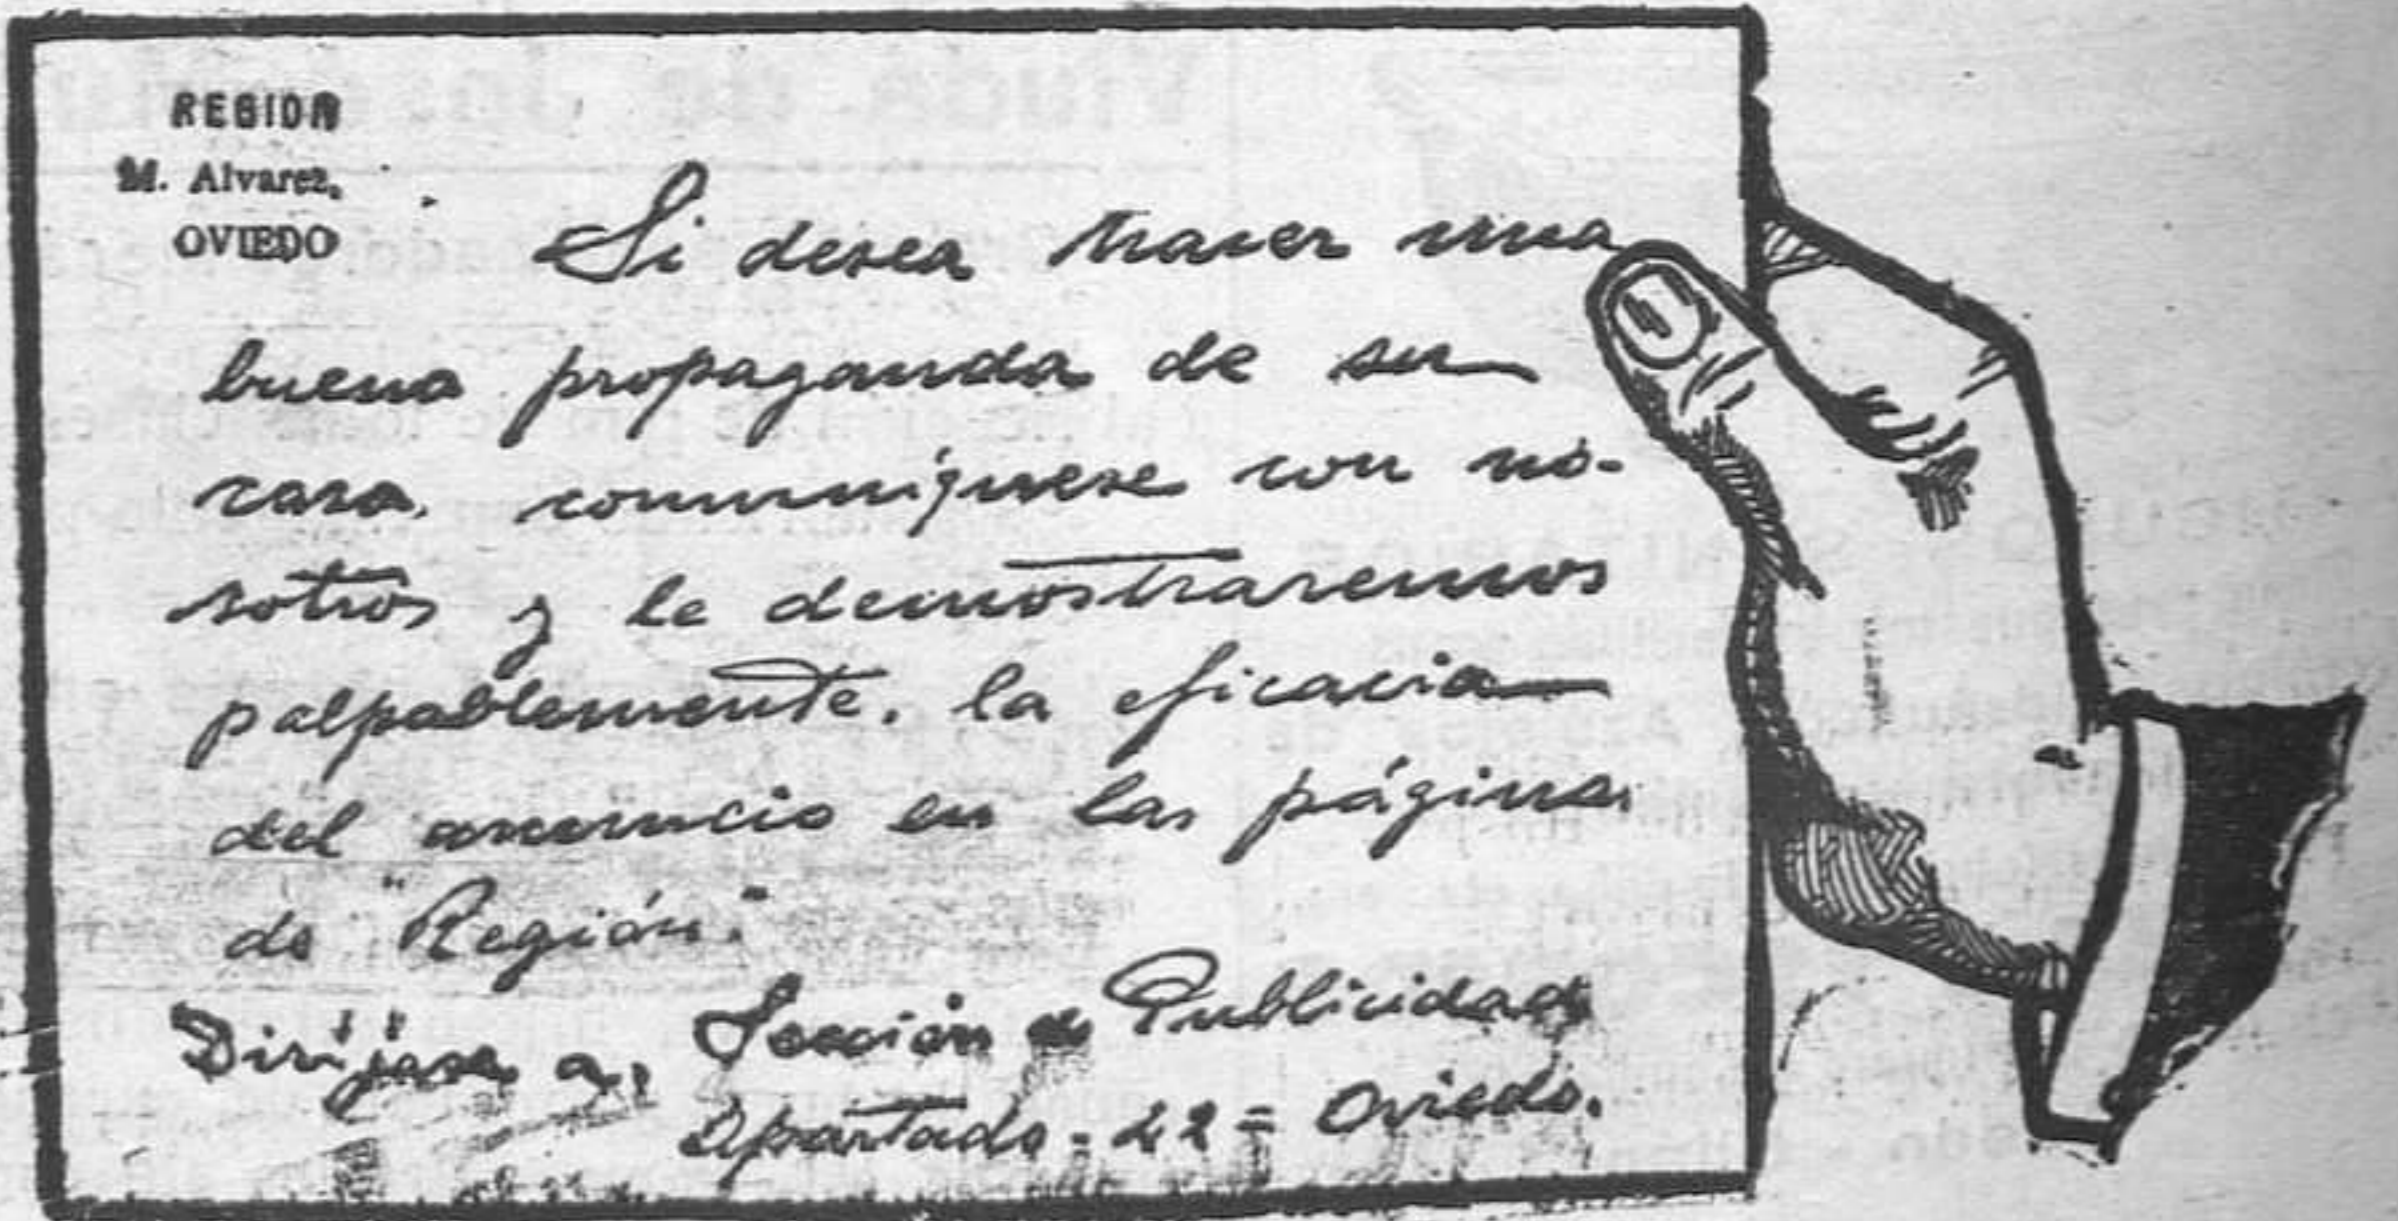 REGION
M. Alvarez,
OVIEDO
Si desea hacer una
buena propaganda de su
casa, comuníquese con no-
sotros y le demostraremos
palpablemente, la eficacia
del anuncio en las páginas
de "Región."
Dirijase a, Sección de Publicidad
Apartado = 42 = Oviedo.